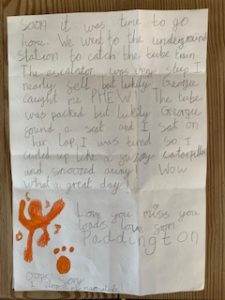 Soon it was time to go
home. We went to the underground
station to catch the tube train.
The escalator was very steep I
nearly fell but lukily Georgie
caught me PHEW! The tube
was packed but lukily Georgie
found a seat and I sat on
her lap. I was tired so I
curled up like a fuzzy caterpillar
and snoozed away! Wow
what a great day!
Love you miss you
loads love from
Paddington
Oops sorry
I